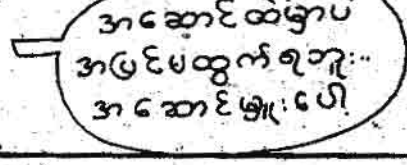 အဆောင်ထဲမှာပဲ
အပြင်မထွက်ရဘူး..
အဆောင်မှူးပေါ့